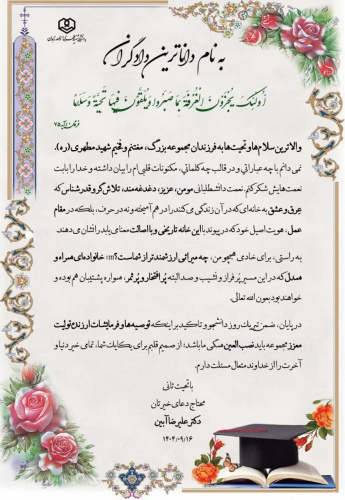 به نام داناترین دادگران
أُولَٰئِكَ يُجْزَوْنَ الْغُرْفَةَ بِمَا صَبَرُوا وَيُلَقَّوْنَ فِيهَا تَحِيَّةً وَسَلَامًا
فرقان، آیه ۷۵
والاترین سلام‌ها و تحیت‌ها به فرزندان مجموعه بزرگ، مغتنم و فخیم شهید مطهری (ره)،
نمی دانم با چه عباراتی و در قالب چه کلماتی، مکنونات قلبی ام را بیان داشته و خدا را بابت
نعمت‌هایش شکر کنم. نعمت دانشطلبان مومن، عزیز، دغدغه مند، تلاش گر و قدر شناس که
عِرق و عشق به خانه‌ای که در آن زندگی می کنند را در هم آمیخته و نه در حرف، بلکه در مقام
عمل، هویت اصیل خود که در پیوند با این خانه تاریخی و با اصالت معنای یابد را نشان می دهند.
به راستی، برای خادمی همچو من، چه میراثی ارزشمندتر از شماست؟!!!! خانواده‌ای همراه و
همدل که در این مسیر پُر فراز و نشیب و صد البته پُر افتخار و پُر ثمر، همواره پشتیبان هم بوده و
خواهند بود بعون الله تعالی.
در پایان، ضمن تبریک روز دانشجو و تاکید بر اینکه توصیه‌ها و فرمایشات ارزنده تولیت
معزز مجموعه باید نصب العین همگی ما باشد؛ از صمیم قلبم برای یکایک شما، تمامی خیر دنیا و
آخرت را از خداوند متعال مسئلت دارم.
با تحیت ثانی
محتاج دعای خیرتان
دکتر علیرضا آبین
۱۴۰۴/۰۹/۱۶